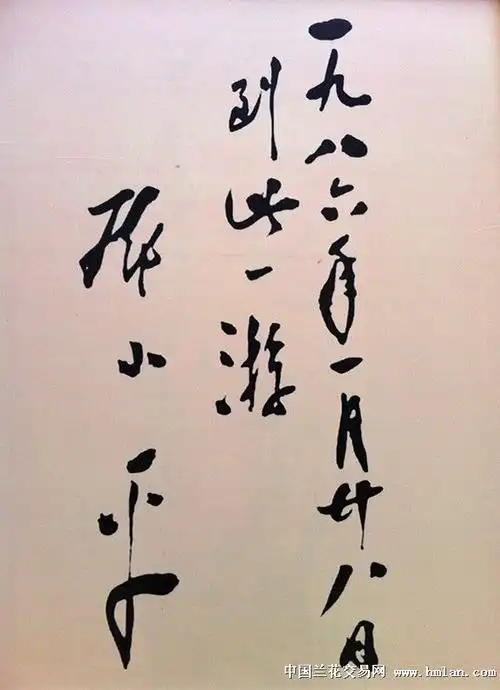 一九八六年一月廿八日
到此一游
邓小平
中国兰花交易网 www.hmlan.com